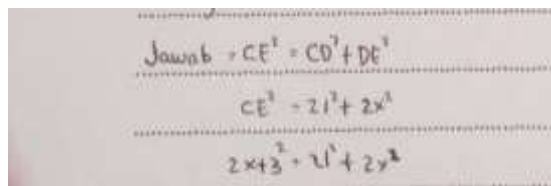 Jawab = CE² = CD² + DE²
CE² = 21² + 2x²
2x+3² = 21² + 2x²